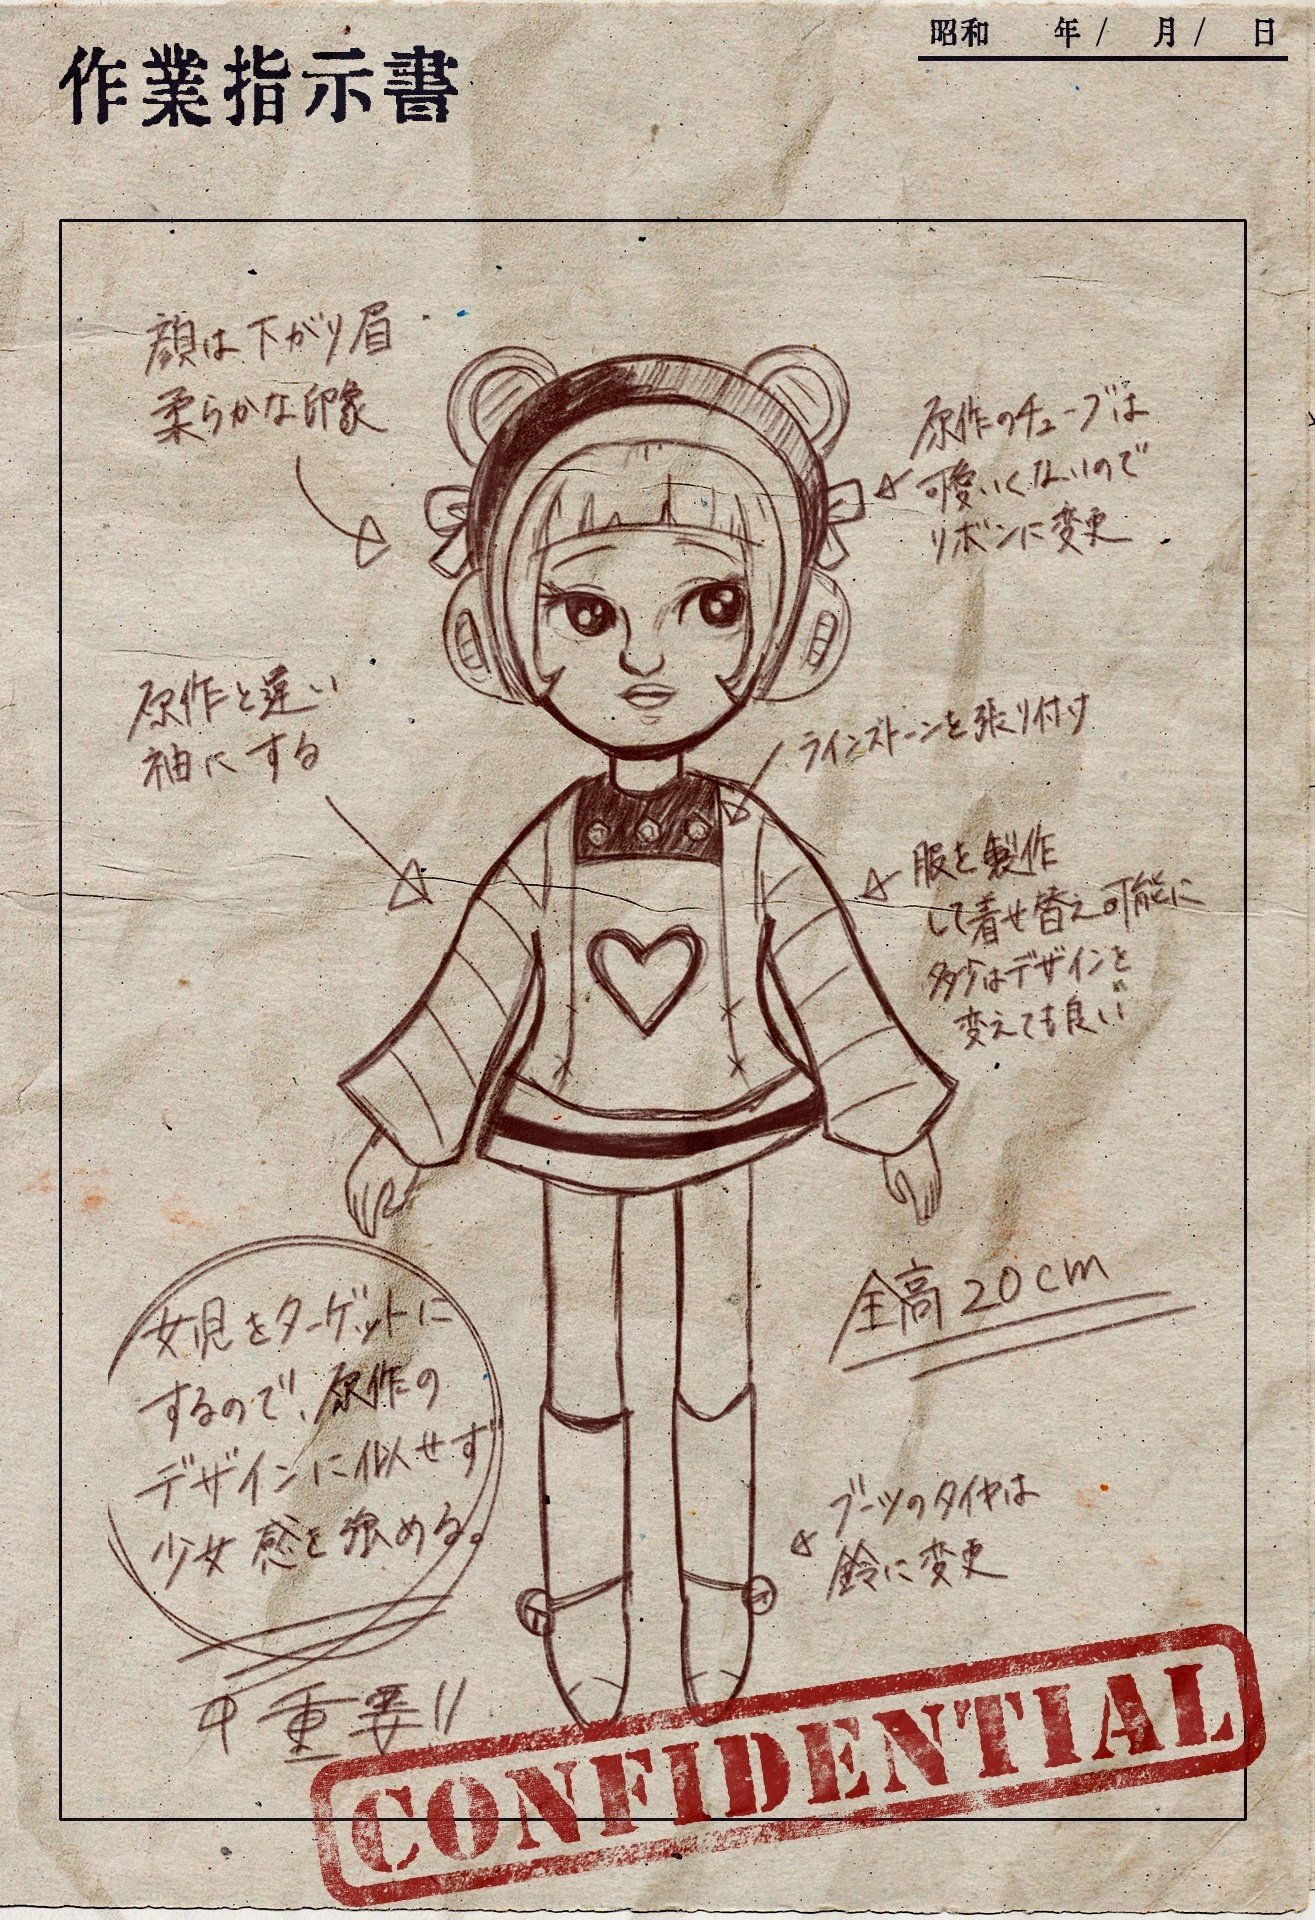 昭和 年/ 月/ 日
作業指示書
顔は下がり眉
柔らかな印象
原作のチューブは
可愛いくないので
リボンに変更
原作と違い
袖にする
ラインストーンを張り付け
服を製作
して着せ替え可能に
多少はデザインを
変えても良い
全高20cm
女児をターゲットに
するので、原作の
デザインに似せず
少女感を強める。
重要!!
ブーツのタイヤは
鈴に変更
CONFIDENTIAL